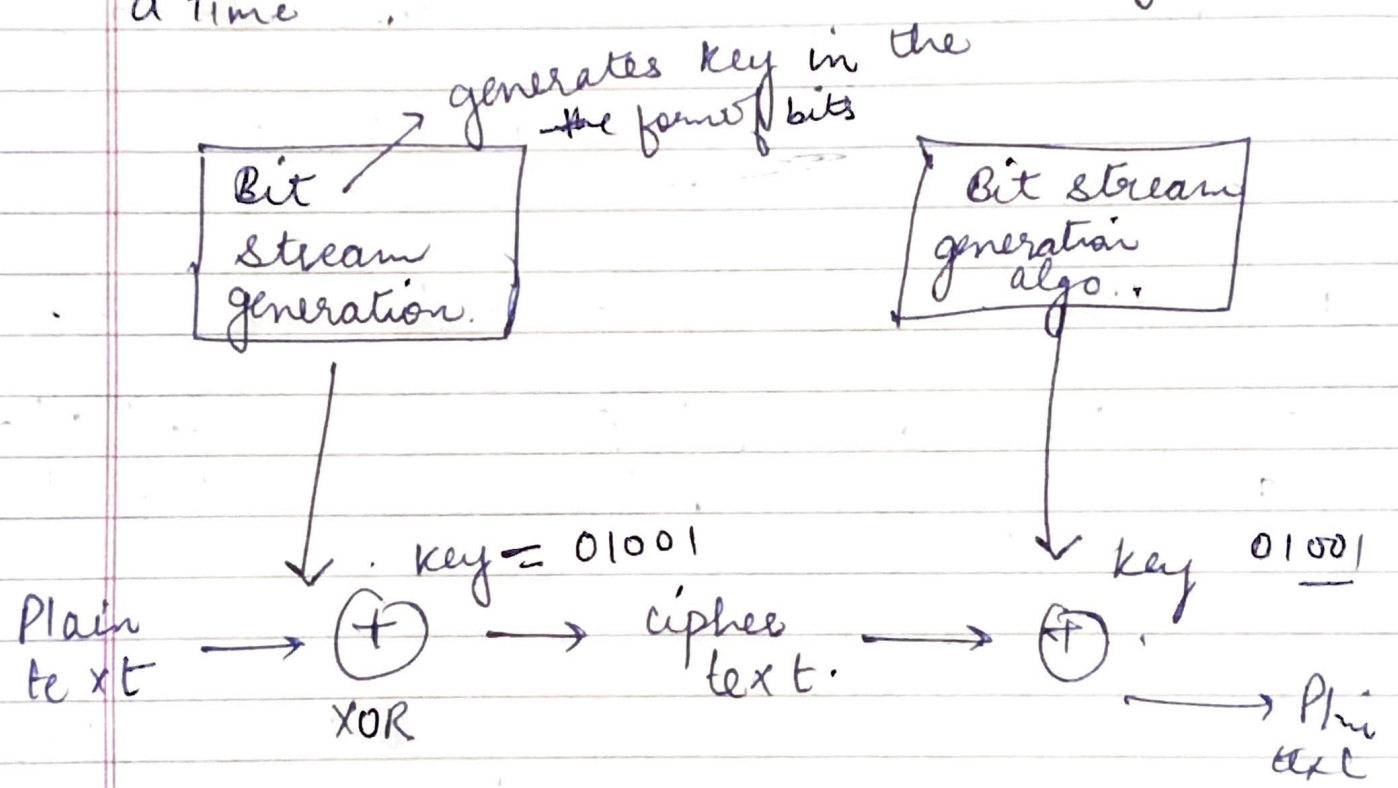 a Time .
generates key in the
the form of bits
Bit
stream
generation.
Bit stream
generation
algo..
key = 01001
key 01001
Plain
text
+
XOR
cipher
text.
+
Plain
text